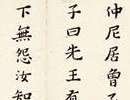 仲尼居曾
子曰先王有
下無怨汝知